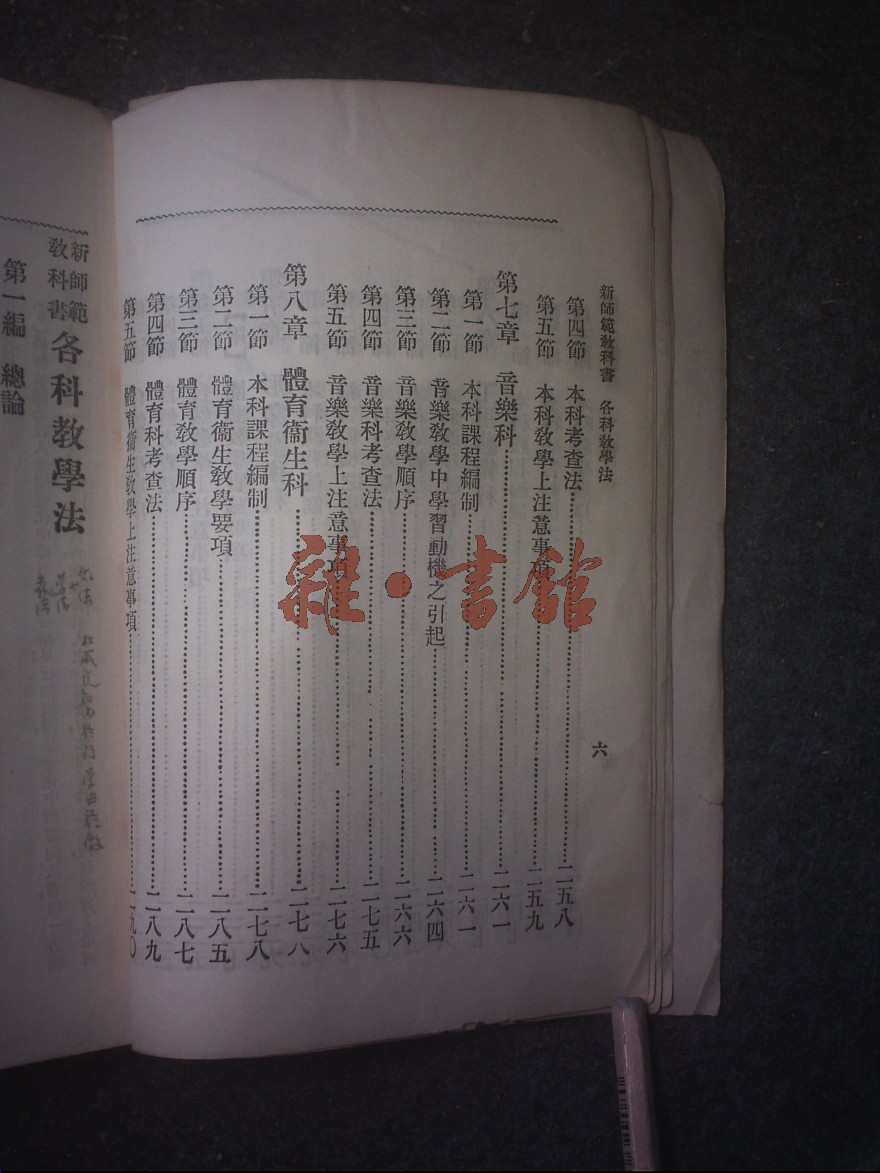 新師範教科書 各科教學法
六
第四節 本科考查法 二五八
第五節 本科教學上注意事項 二五九
第七章 音樂科 二六一
第一節 本科課程編制 二六一
第二節 音樂教學中學習動機之引起 二六四
第三節 音樂教學順序 二六六
第四節 音樂科考查法 二七五
第五節 音樂教學上注意事項 二七六
第八章 體育衞生科 二七八
第一節 本科課程編制 二七八
第二節 體育衞生教學要項 二八五
第三節 體育教學順序 二八七
第四節 體育科考查法 二八九
第五節 體育衞生教學上注意事項 二九〇
新師範教科書 各科教學法
第一編 總論
雜·書館